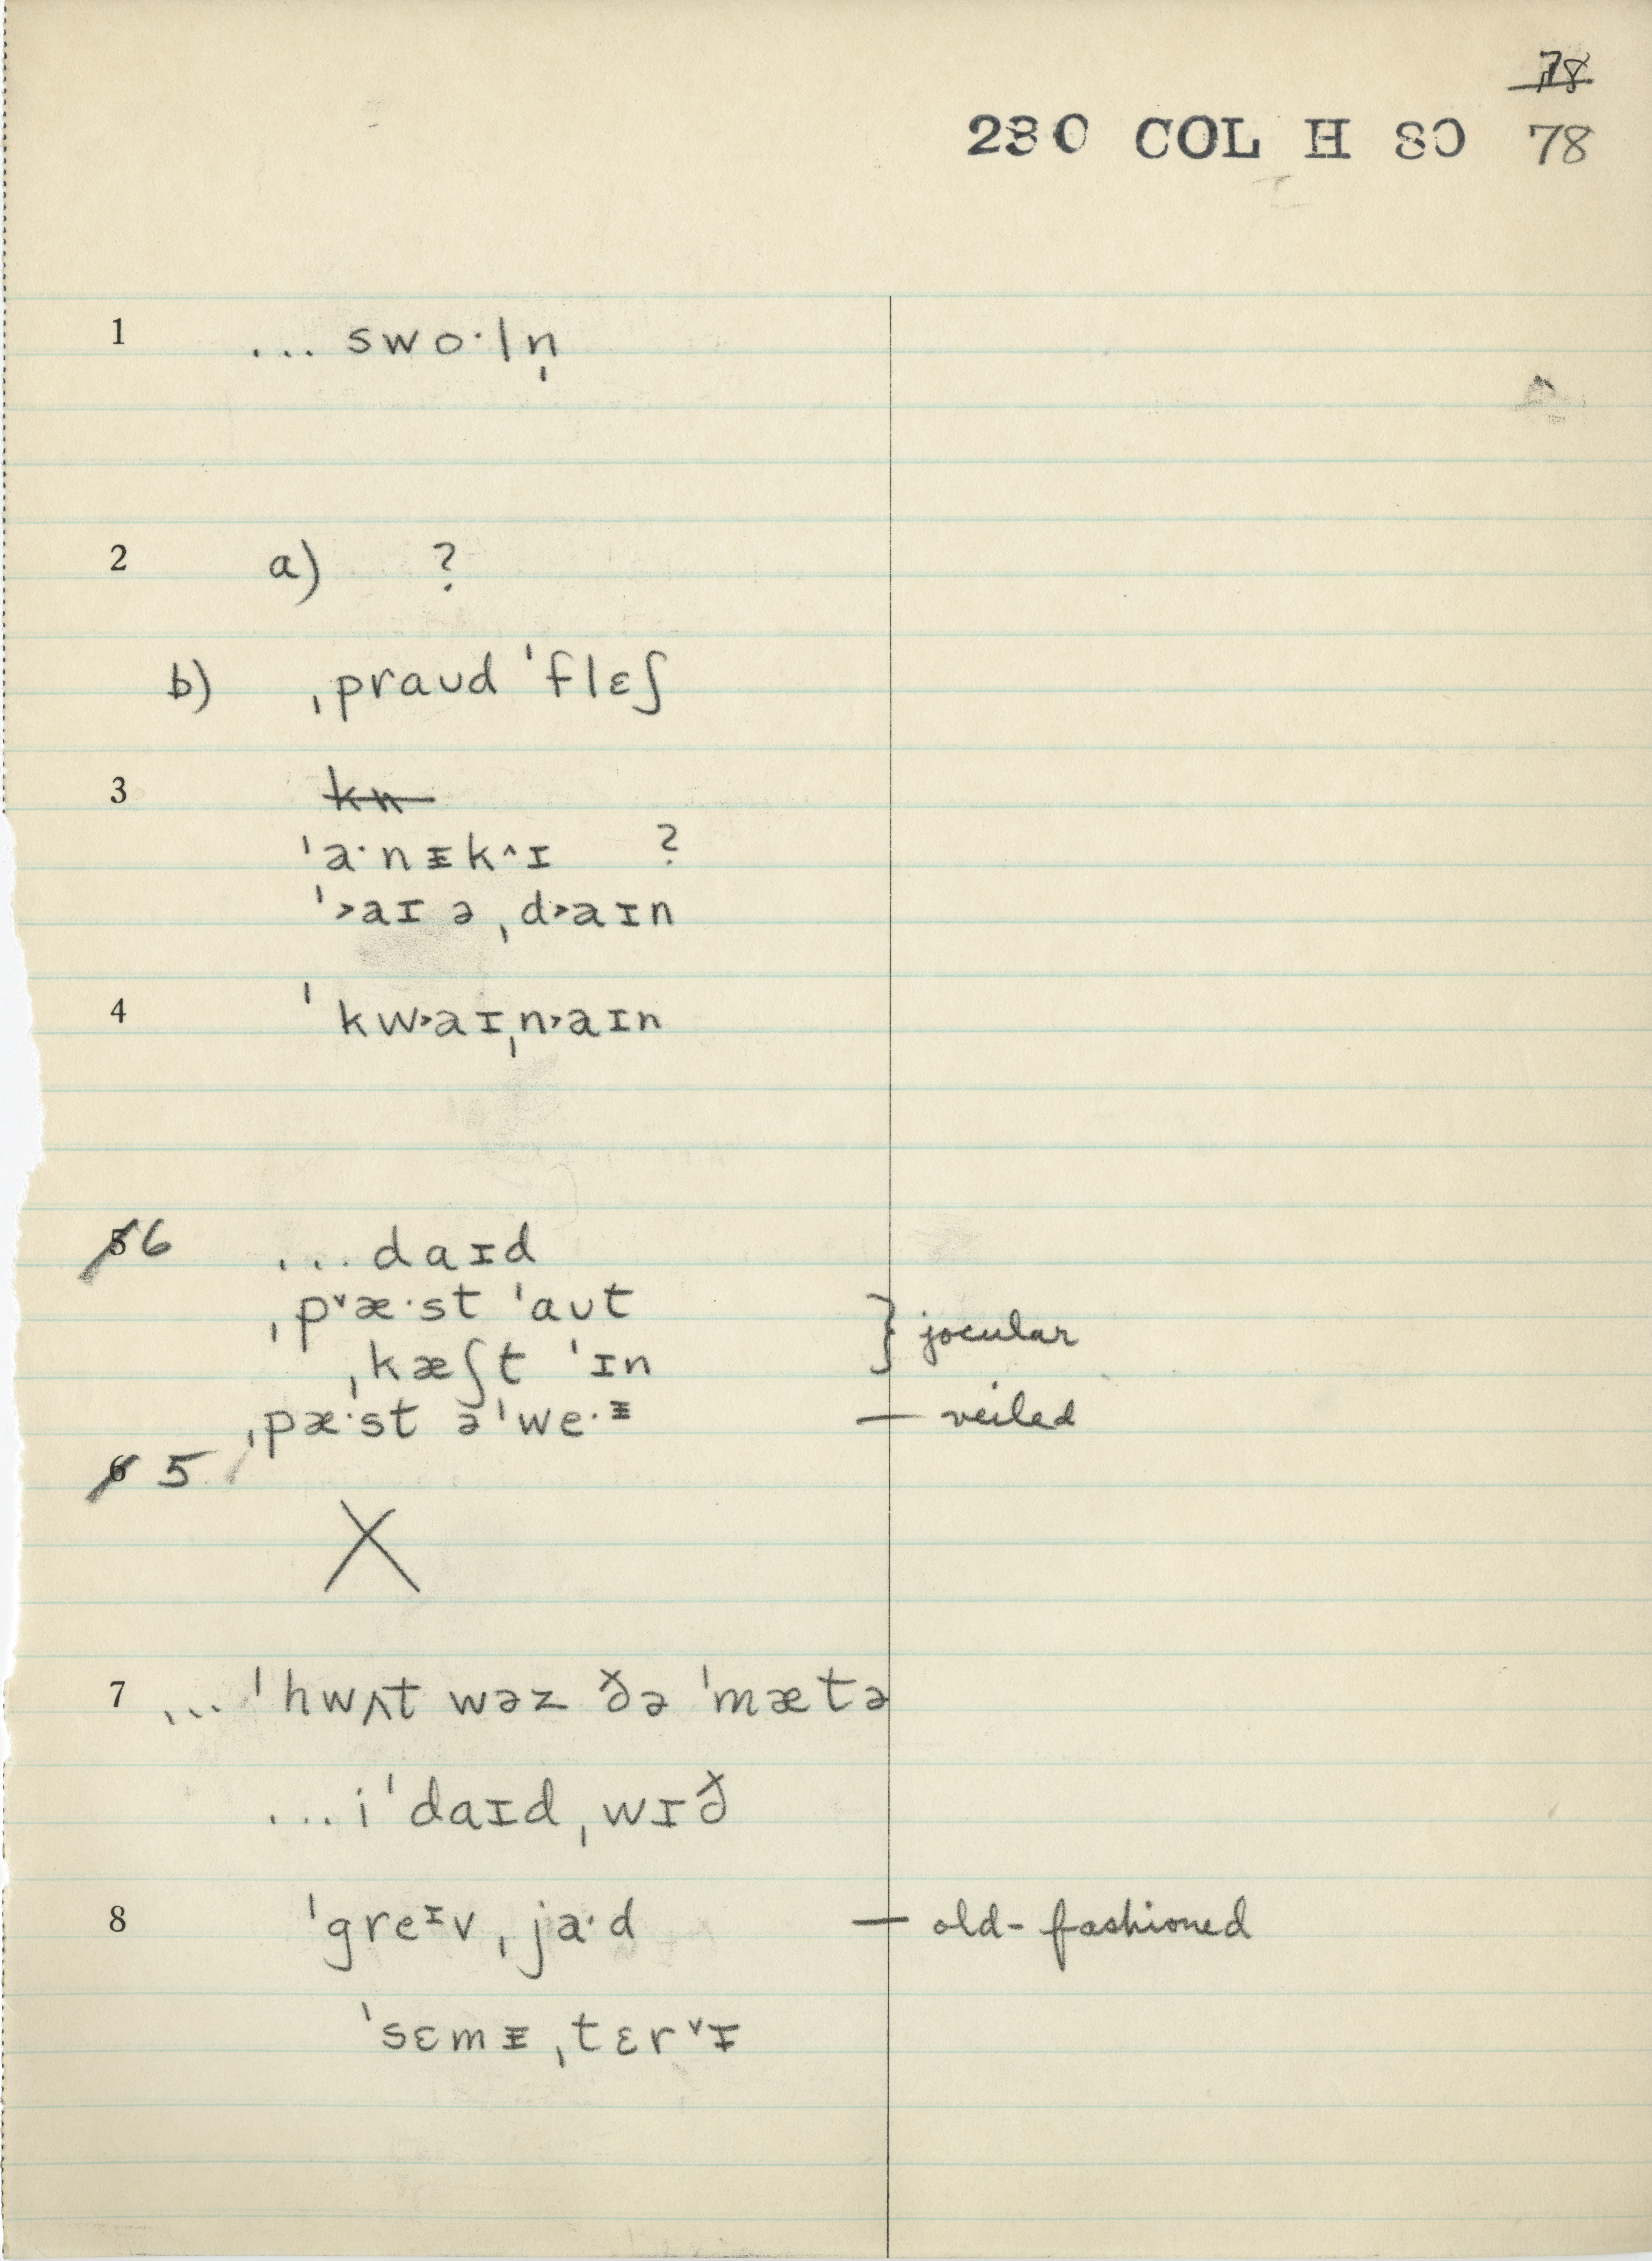 78
230 COL H SC 78
1 ... swo·ln̩
2 a) ?
b) ˌpraʊd ˈflɛʃ
3 kn
ˈa·nᵻk^ɪ ?
ˈ˃aɪ ə ˌd˃aɪn
4 ˈkw˃aɪˌn˃aɪn
5 6 ... daɪd
ˌp˅æ·st ˈaʊt } jocular
ˌkæʃt ˈɪn
ˌpæ·st əˈwe·ᵻ — veiled
6 5
X
7 ... ˈhwʌt wəz ðə ˈmætə
... i ˈdaɪd ˌwɪð
8 ˈgreᶦv ˌja·d — old-fashioned
ˈsɛmᵻˌtɛr˅ɪ